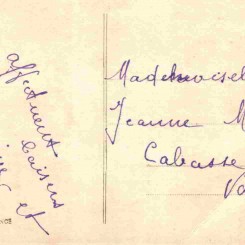 affectueux
baisers
et
Mademoisel
Jeanne M
Cabasse
Va
NCE